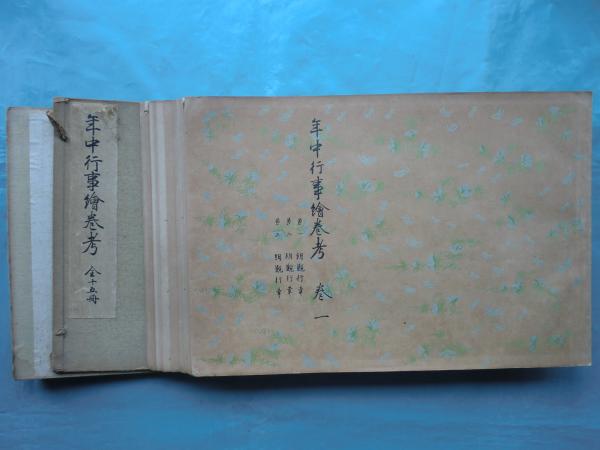 年中行事繪巻考 巻一
朝覲行幸
朝覲行幸
朝覲行幸
年中行事繪巻考 全十五冊